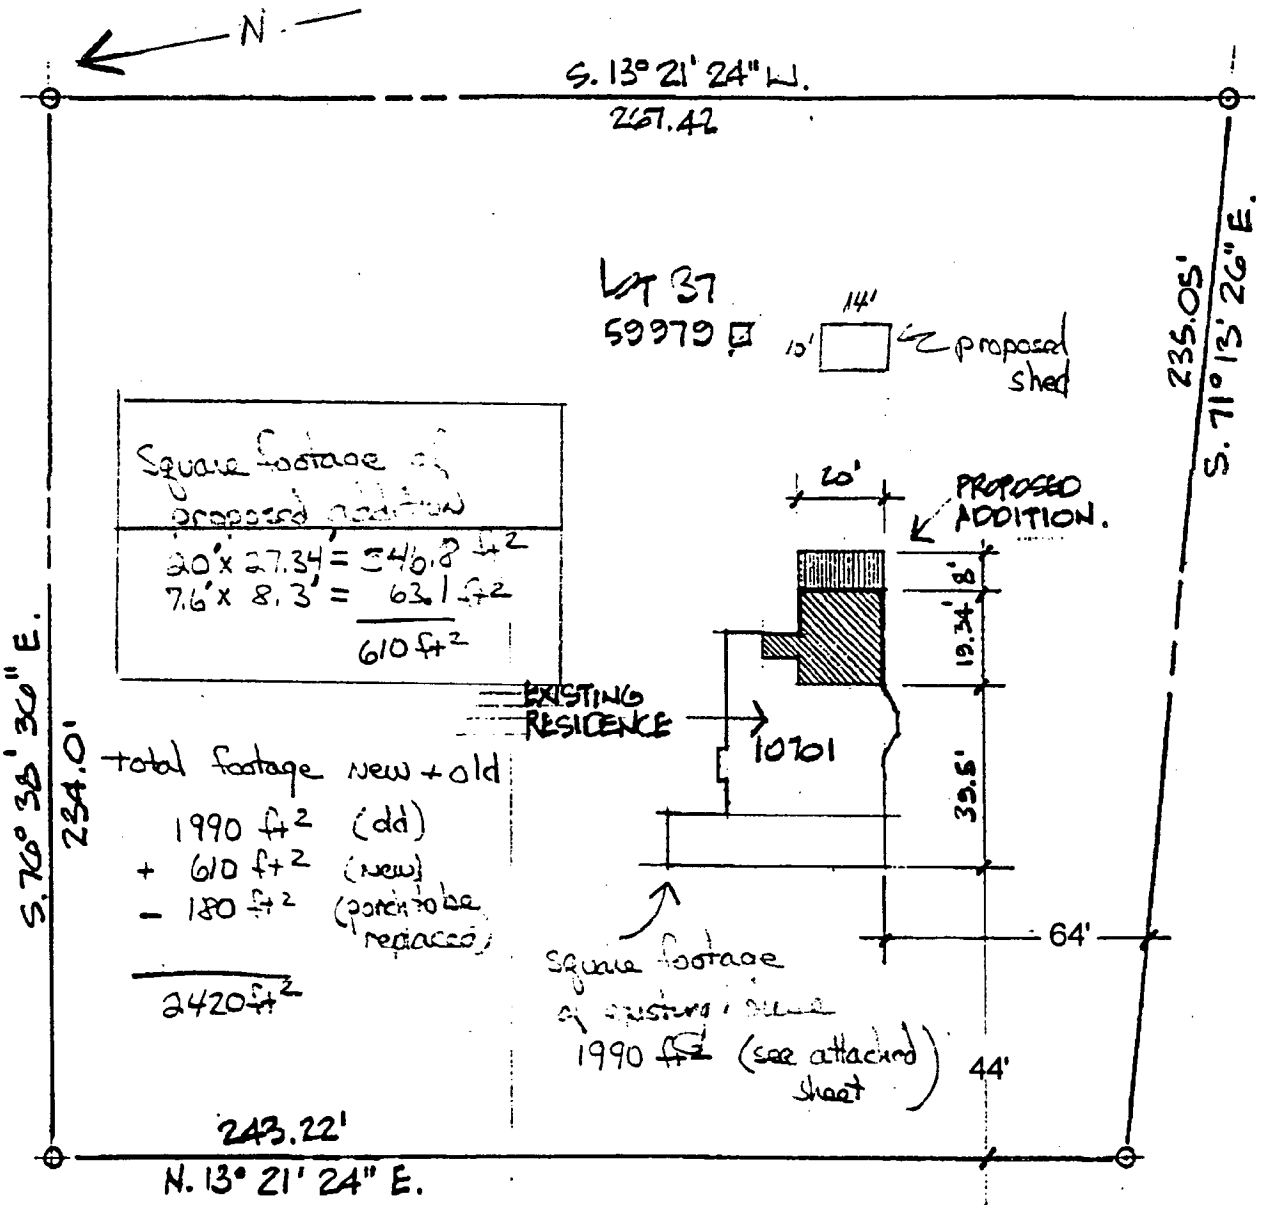 N
S. 13° 21' 24" W.
267.42
LOT 37
59979
14'
10'
proposed
shed
235.05'
S. 71° 13' 26" E.
Square footage of
proposed addition
20' x 27.34' = 546.8 ft²
7.6' x 8.3' = 63.1 ft²
610 ft²
20'
PROPOSED
ADDITION.
8'
19.34'
39.5'
EXISTING
RESIDENCE
10701
S. 76° 38' 36" E.
234.0'
total footage new + old
1990 ft² (old)
+ 610 ft² (new)
- 180 ft² (porch to be
replaced)
2420 ft²
64'
square footage
of existing
1990 ft² (see attached
sheet)
44'
243.22'
N. 13° 21' 24" E.